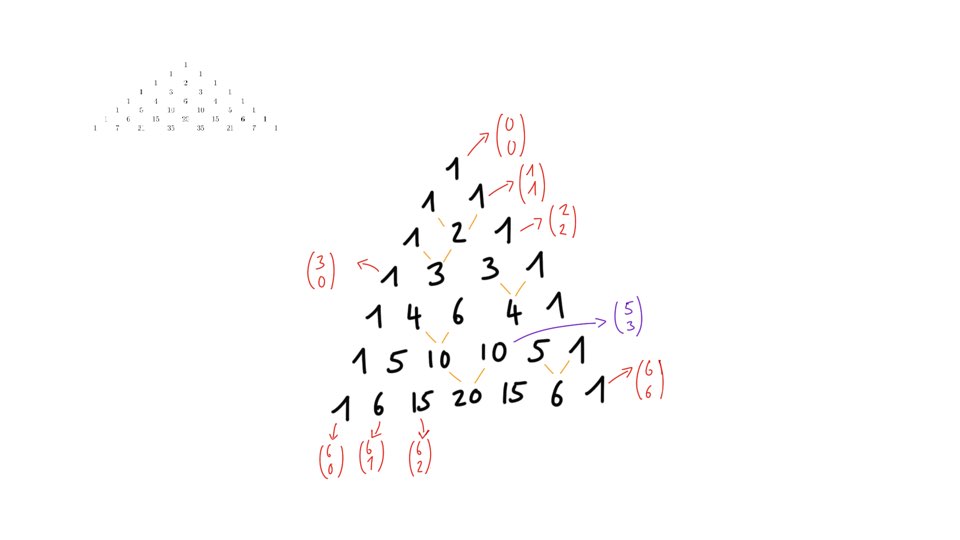 1
1 1
1 2 1
1 3 3 1
1 4 6 4 1
1 5 10 10 5 1
1 6 15 20 15 6 1
1 7 21 35 35 21 7 1
1 (0 0)
1 1 (1 1)
1 2 1 (2 2)
(3 0) 1 3 3 1
1 4 6 4 1
1 5 10 10 5 1 (5 3)
1 6 15 20 15 6 1 (6 6)
(6 0) (6 1) (6 2)